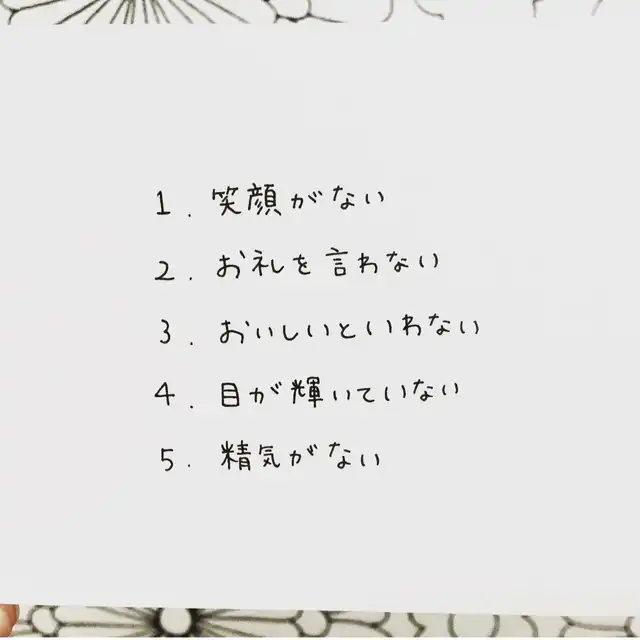 1. 笑顔がない
2. お礼を言わない
3. おいしいといわない
4. 目が輝いていない
5. 精気がない